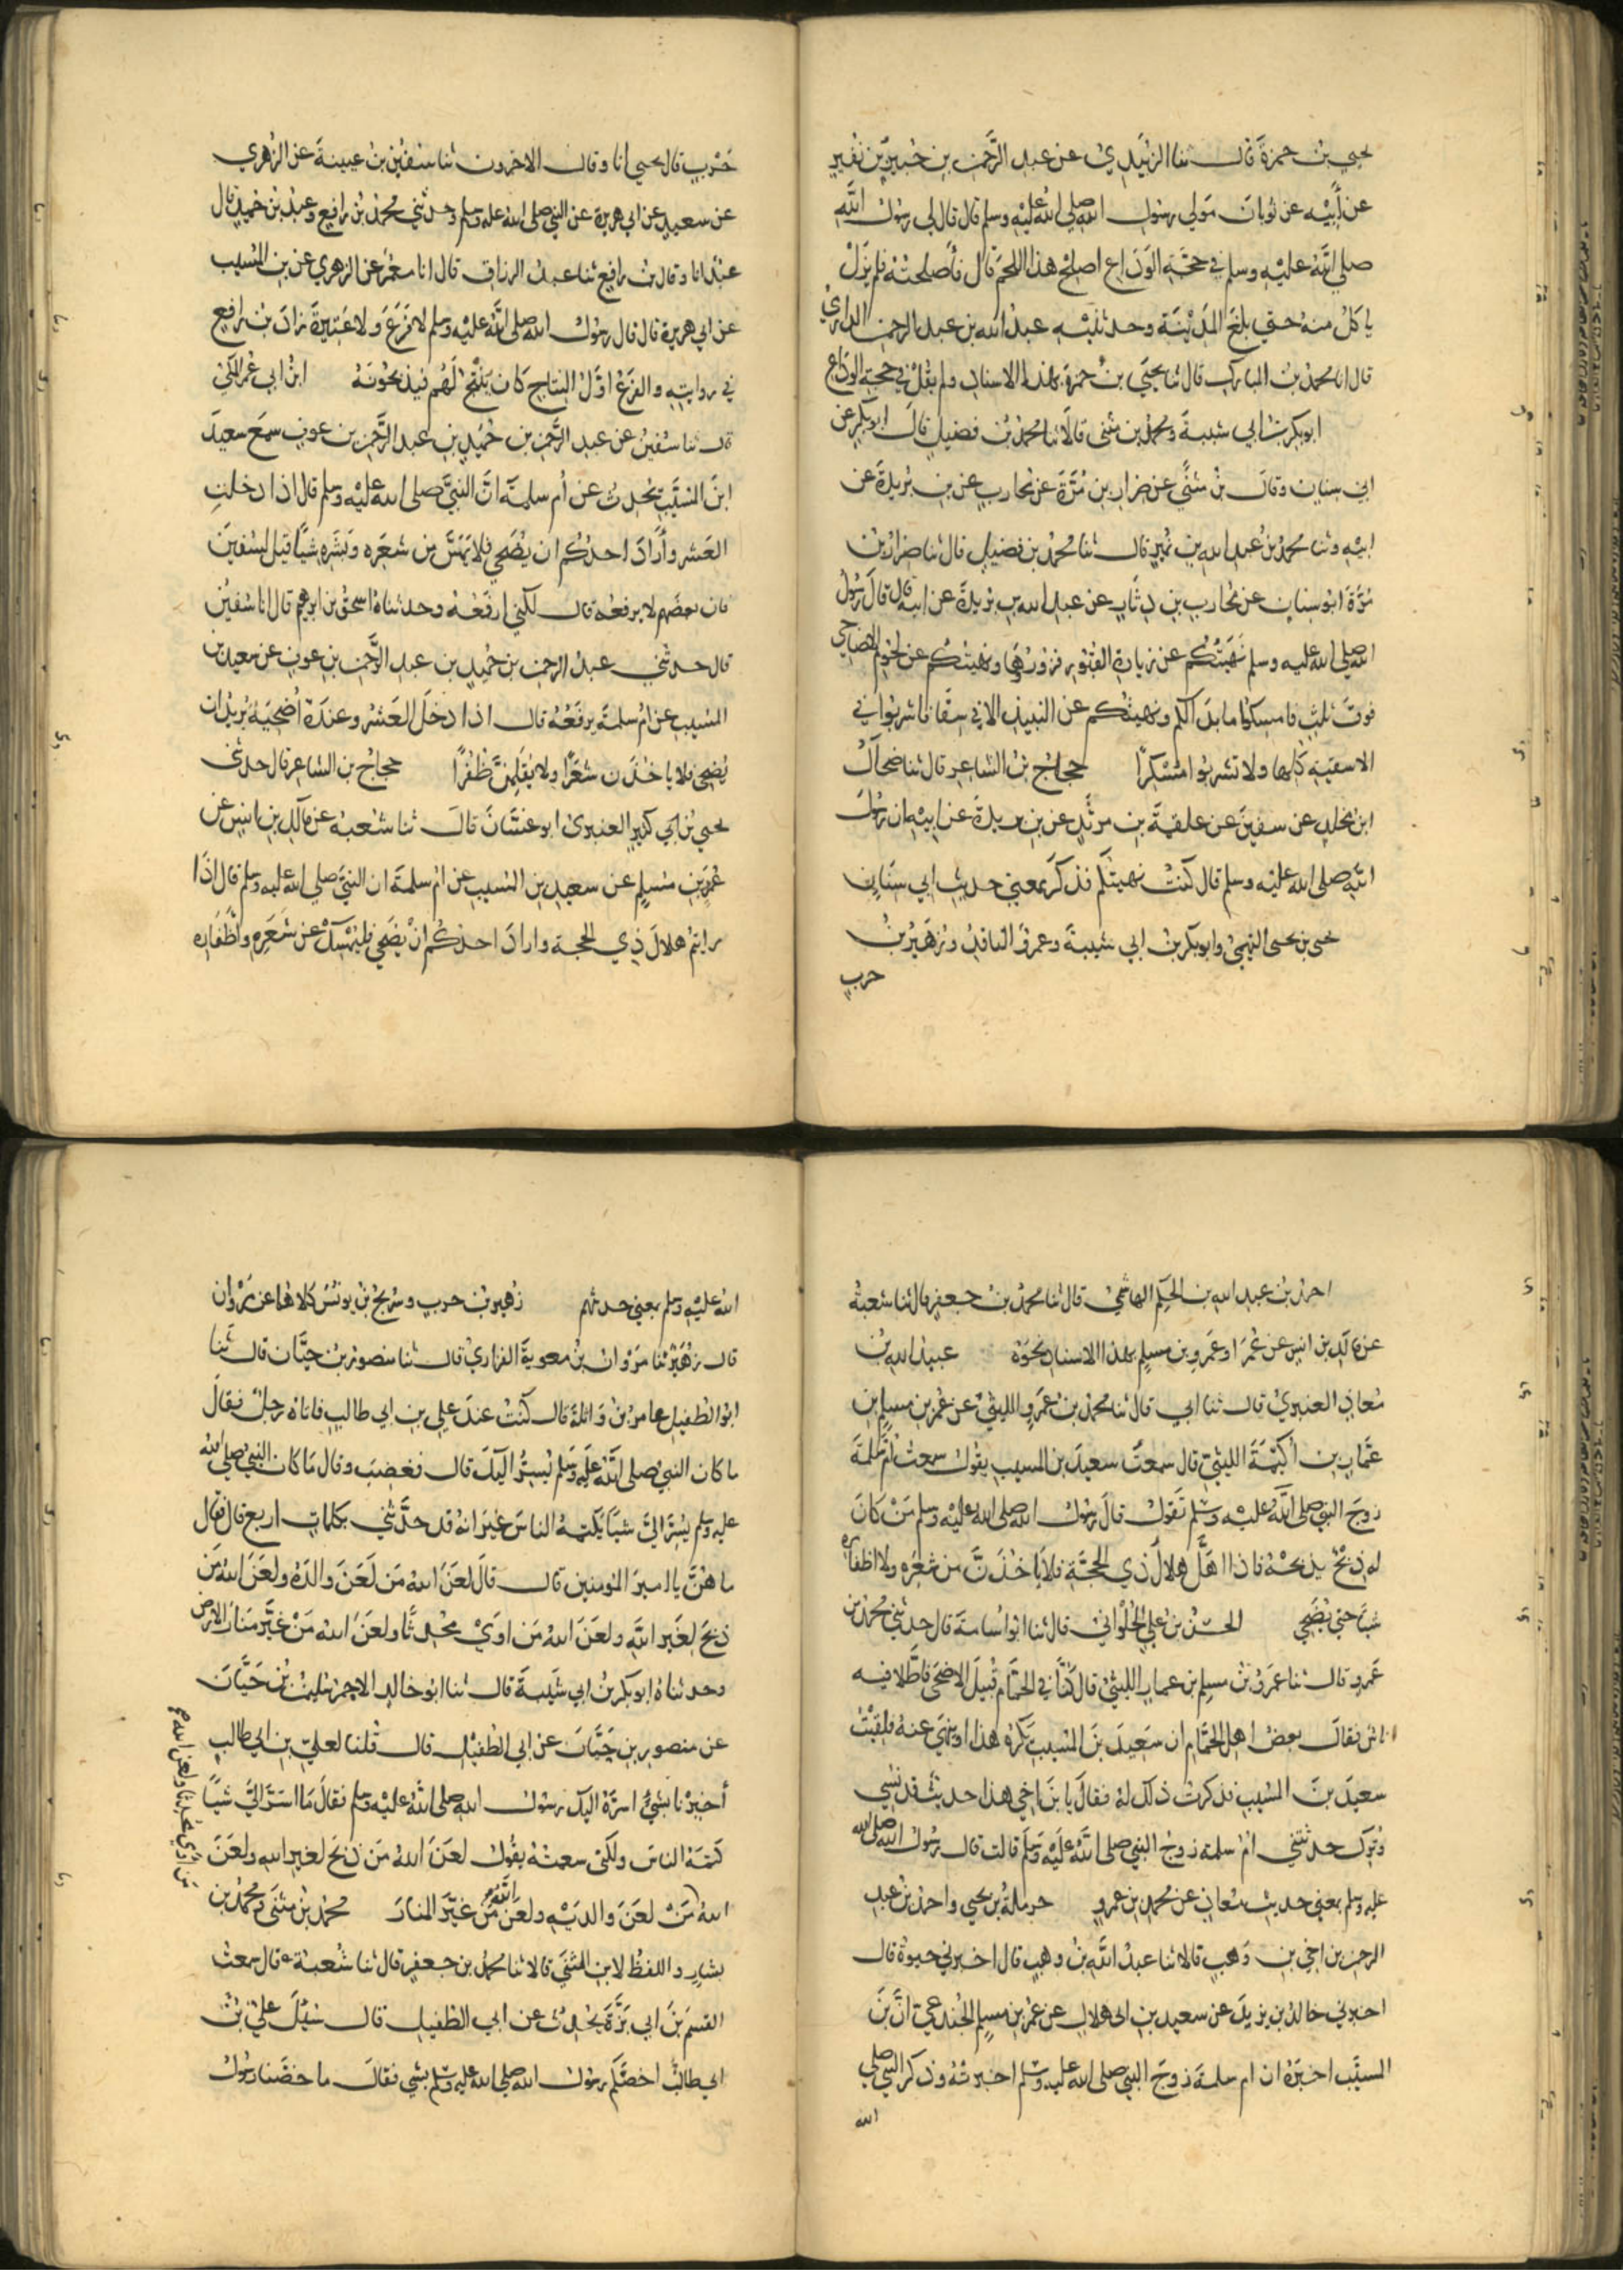 يحيى بن حمزة قال ثنا الزبيدي عن عبد الرحمن بن جبير بن نفير
عن أبيه عن ثوبان مولى رسول الله صلى الله عليه وسلم قال قال لي رسول الله
صلى الله عليه وسلم في حجة الوداع اصلح هذا اللحم قال فأصلحته فلم يزل
يأكل منه حتى بلغ المدينة وحدثنيه عبد الله بن عبد الرحمن الدارمي
قال انا محمد بن المبارك قال ثنا يحيى بن حمزة بهذا الاسناد ولم يقل في حجة الوداع
ابو بكر بن ابي شيبة ومحمد بن مثنى قالا ثنا محمد بن فضيل قال ابو بكر عن
ابي سنان وقال بن مثنى عن ضرار بن مرة عن محارب عن بن بريدة عن
ابيه وثنا محمد بن عبد الله بن نمير قال ثنا محمد بن فضيل قال ثنا ضرار بن
مرة ابو سنان عن محارب بن دثار عن عبد الله بن بريدة عن ابيه قال قال رسول
الله صلى الله عليه وسلم نهيتكم عن زيارة القبور فزوروها ونهيتكم عن لحوم الاضاحي
فوق ثلث فامسكوا ما بدا لكم ونهيتكم عن النبيذ الا في سقا فاشربوا في
الاسقية كلها ولا تشربوا مسكرا حجاج بن الشاعر قال ثنا ضحاك
ابن مخلد عن سفين عن علقمة بن مرثد عن بن بريدة عن ابيه ان رسول
الله صلى الله عليه وسلم قال كنت نهيتكم فذكر بمعنى حديث ابي سنان
يحيى بن يحيى التميمي وابو بكر بن ابي شيبة وعمرو الناقد وزهير بن
حرب
حرب قال يحيى انا وقال الاخرون ثنا سفين بن عيينة عن الزهري
عن سعيد عن ابي هريرة عن النبي صلى الله عليه وسلم وحدثني محمد بن رافع وعبد بن حميد قال
عبد انا وقال بن رافع ثنا عبد الرزاق قال انا معمر عن الزهري عن بن المسيب
عن ابي هريرة قال قال رسول الله صلى الله عليه وسلم لا فرع ولا عتيرة زاد بن رافع
في روايته والفرع اول النتاج كان ينتج لهم فيذبحونه ابن ابي عمر المكي
قال ثنا سفين عن عبد الرحمن بن حميد بن عبد الرحمن بن عوف سمع سعيد
ابن المسيب يحدث عن أم سلمة ان النبي صلى الله عليه وسلم قال اذا دخلت
العشر وأراد احدكم ان يضحي فلا يمس من شعره وبشره شيا قيل لسفين
فان بعضهم لا يرفعه قال لكني ارفعه وحدثناه اسحق بن ابرهيم قال انا سفين
قال حدثني عبد الرحمن بن حميد بن عبد الرحمن بن عوف عن سعيد بن
المسيب عن ام سلمة يرفعه قال اذا دخل العشر وعنده أضحية يريد ان
يضحي فلا ياخذن شعرا ولا يقلمن ظفرا حجاج بن الشاعر قال حدثني
يحيى بن ابي كثير العنبري ابو غسان قال ثنا شعبة عن مالك بن انس عن
عمر بن مسلم عن سعيد بن المسيب عن ام سلمة ان النبي صلى الله عليه وسلم قال اذا
رايتم هلال ذي الحجة واراد احدكم ان يضحي فليمسك عن شعره واظفاره
احمد بن عبد الله بن الحكم الهاشمي قال ثنا محمد بن جعفر قال ثنا شعبة
عن مالك بن انس عن عمر او عمرو بن مسلم بهذا الاسناد نحوه عبيد الله بن
معاذ العنبري قال ثنا ابي قال ثنا محمد بن عمرو الليثي عن عمر بن مسلم بن
عمار بن اكيمة الليثي قال سمعت سعيد بن المسيب يقول سمعت ام سلمة
زوج النبي صلى الله عليه وسلم تقول قال رسول الله صلى الله عليه وسلم من كان
له ذبح يذبحه فاذا اهل هلال ذي الحجة فلا ياخذن من شعره ولا اظفاره
شيا حتى يضحي الحسن بن علي الحلواني قال ثنا ابو اسامة قال حدثني محمد بن
عمرو قال ثنا عمرو بن مسلم بن عمار الليثي قال كنا في الحمام قبيل الاضحى فاطلا فيه
اناس فقال بعض اهل الحمام ان سعيد بن المسيب يكره هذا او ينهى عنه فلقيت
سعيد بن المسيب فذكرت ذلك له فقال يا بن اخي هذا حديث قد نسي
وترك حدثتني ام سلمة زوج النبي صلى الله عليه وسلم قالت قال رسول الله صلى الله
عليه وسلم بمعنى حديث معاذ عن محمد بن عمرو حرملة بن يحيى واحمد بن عبد
الرحمن بن اخي بن وهب قالا ثنا عبد الله بن وهب قال اخبرني حيوة قال
اخبرني خالد بن يزيد عن سعيد بن ابي هلال عن عمر بن مسلم الجندعي ان بن
المسيب اخبره ان ام سلمة زوج النبي صلى الله عليه وسلم اخبرته وذكر النبي صلى
الله
الله عليه وسلم بمعنى حديثهم زهير بن حرب وسريج بن يونس كلاهما عن مروان
قال زهير ثنا مروان بن معوية الفزاري قال ثنا منصور بن حيان قال ثنا
ابو الطفيل عامر بن واثلة قال كنت عند علي بن ابي طالب فاتاه رجل فقال
ما كان النبي صلى الله عليه وسلم يسر اليك قال فغضب وقال ما كان النبي صلى الله
عليه وسلم يسر الي شيا يكتمه الناس غير انه قد حدثني بكلمات اربع قال فقال
ما هن يا امير المومنين قال قال لعن الله من لعن والده ولعن الله من
ذبح لغير الله ولعن الله من اوى محدثا ولعن الله من غير منار الارض
وحدثناه ابو بكر بن ابي شيبة قال ثنا ابو خالد الاحمر سليمن بن حيان
عن منصور بن حيان عن ابي الطفيل قال قلنا لعلي بن ابي طالب
أخبرنا بشيء اسره اليك رسول الله صلى الله عليه وسلم فقال ما اسر الي شيا
كتمه الناس ولكني سمعته يقول لعن الله من ذبح لغير الله ولعن
الله من لعن والديه ولعن الله من غير المنار محمد بن مثنى ومحمد بن
بشار واللفظ لابن المثنى قالا ثنا محمد بن جعفر قال ثنا شعبة قال سمعت
القسم بن ابي بزة يحدث عن ابي الطفيل قال سئل علي بن
ابي طالب اخصكم رسول الله صلى الله عليه وسلم بشي فقال ما خصنا رسول
من آوى محدثا ولعن الله